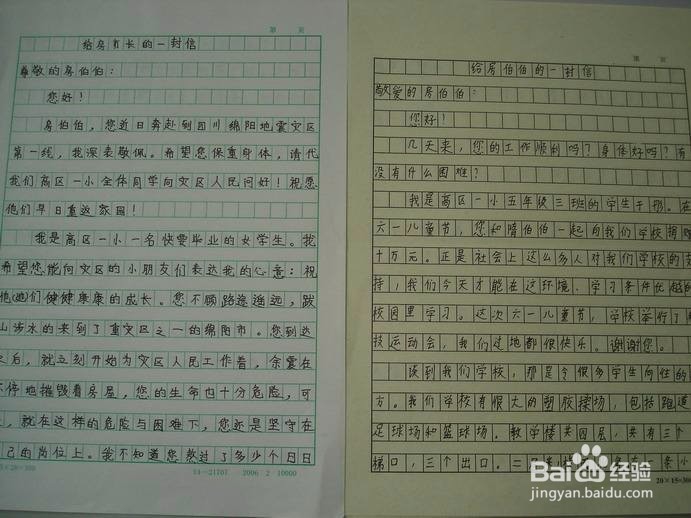 第 页
给房市长的一封信
尊敬的房伯伯：
您好！
房伯伯，您近日奔赴到四川绵阳地震灾区
第一线，我深表敬佩。希望您保重身体，请代
我们高区一小全体同学向灾区人民问好！祝愿
他们早日重返家园！
我是高区一小一名快要毕业的女学生。我
希望您能向灾区的小朋友们表达我的心意：祝
他(她)们健健康康的成长。您不顾路途遥远，跋
山涉水的来到了重灾区之一的绵阳市。您到达
之后，就立刻开始为灾区人民工作着，余震在
不停地摧毁着房屋，您的生命也十分危险，可
，就在这样的危险与困难下，您还是坚守在
己的岗位上。我不知道您熬过了多少个日日
5×20=300
14—21707 2006.2.10000
第 页
给房伯伯的一封信
敬爱的房伯伯：
您好！
几天来，您的工作顺利吗？身体好吗？有
没有什么困难？
我是高区一小五年级三班的学生于彤。在
六一儿童节，您和隋伯伯一起向我们学校捐
十万元。正是社会上这么多人对我们学校的支
持，我们今天才能在这环境、学习条件优越的
校园里学习。这次六一儿童节，学校举行了
技运动会，我们过地都很快乐。谢谢您。
谈到我们学校，那是令很多学生向往的
方。我们学校有很大的塑胶操场，包括跑道
足球场和篮球场。教学楼共四层，共有三个
梯口，三个出口。二
20×15=300
Baidu经验
jingyan.baidu.com